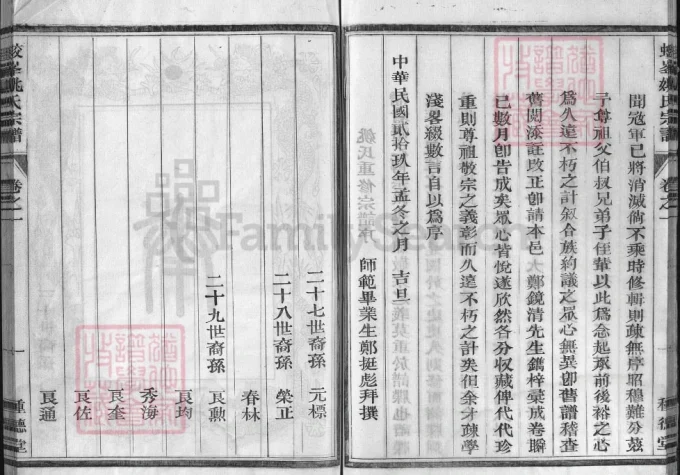 聞冠軍已將消滅倘不乘時修輯則疎無序昭穆難分茲
子尊祖父伯叔兄弟子侄輩以此爲念起承前後裕之心
爲久遠不朽之計叙合族約議之眾心無異卽舊譜稽查
舊閱添註改正卽請本邑大鄭鏡清先生鐫梓彙成卷聯
已數月卽告成矣眾心皆悅遂欣然各分收藏俾代代珍
重則尊祖敬宗之義彰而久遠不朽之計矣但余才疎學
淺畧綴數言自以爲序
中華民國貳拾玖年孟冬之月 吉旦
師範畢業生鄭挺彪拜撰
姚氏宗譜 卷之一 一 種德堂
二十七世裔孫 元標
二十八世裔孫 榮正
春林
二十九世裔孫 良勲
良均
秀海
良奎
良佐
良通
姚氏宗譜 卷之一 一 種德堂
FamilySearch